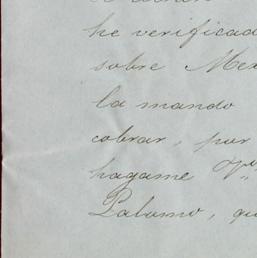 he verificad
sobre Mex
la mando
cobrar, por
hagame V.
Palomo, qu